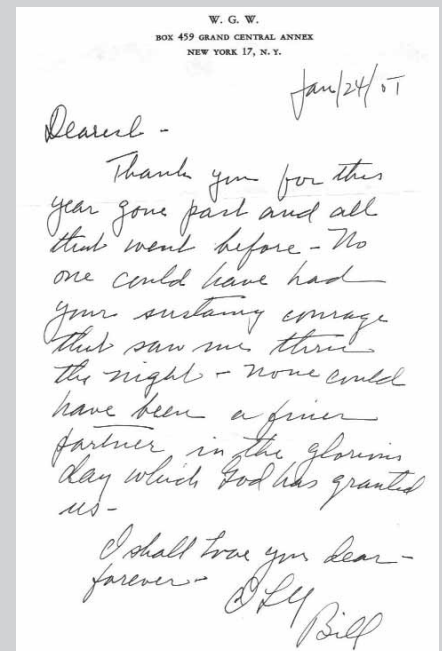 W. G. W.
BOX 459 GRAND CENTRAL ANNEX
NEW YORK 17, N. Y.
Jan/24/51
Dearest -
Thank you for this
year gone past and all
that went before - No
one could have had
your sustaing courage
that saw me thru
the night - none could
have been a finer
partner in the glorious
day which God has granted
us -
I shall love you dear -
forever -
ILY
Bill